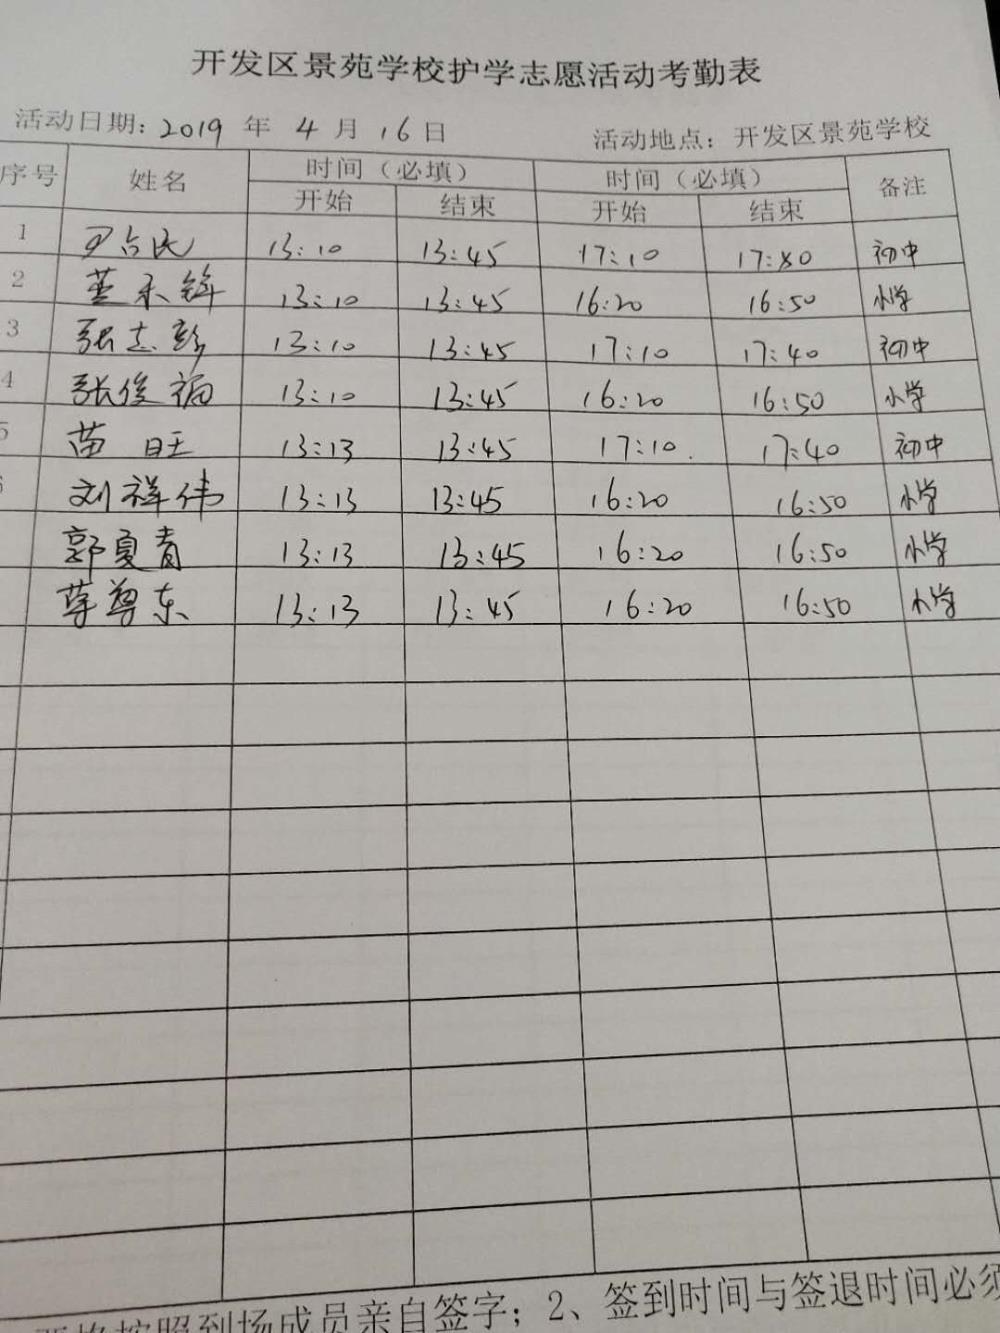 开发区景苑学校护学志愿活动考勤表
活动日期: 2019 年 4 月 16 日 活动地点: 开发区景苑学校
序号 姓名 时间（必填） 时间（必填） 备注
开始 结束 开始 结束
1 尹占民 13:10 13:45 17:10 初中
2 13:10 13:45 16:20 16:50 小学
3 张志彭 13:10 13:45 17:10 17:40 初中
4 张俊福 13:10 13:45 16:20 16:50 小学
5 苗旺 13:13 13:45 17:10 17:40 初中
刘祥伟 13:13 13:45 16:20 16:50 小学
郭夏青 13:13 13:45 16:20 16:50 小学
尊东 13:13 13:45 16:20 16:50 小学
按照到场成员亲自签字；2、签到时间与签退时间必须